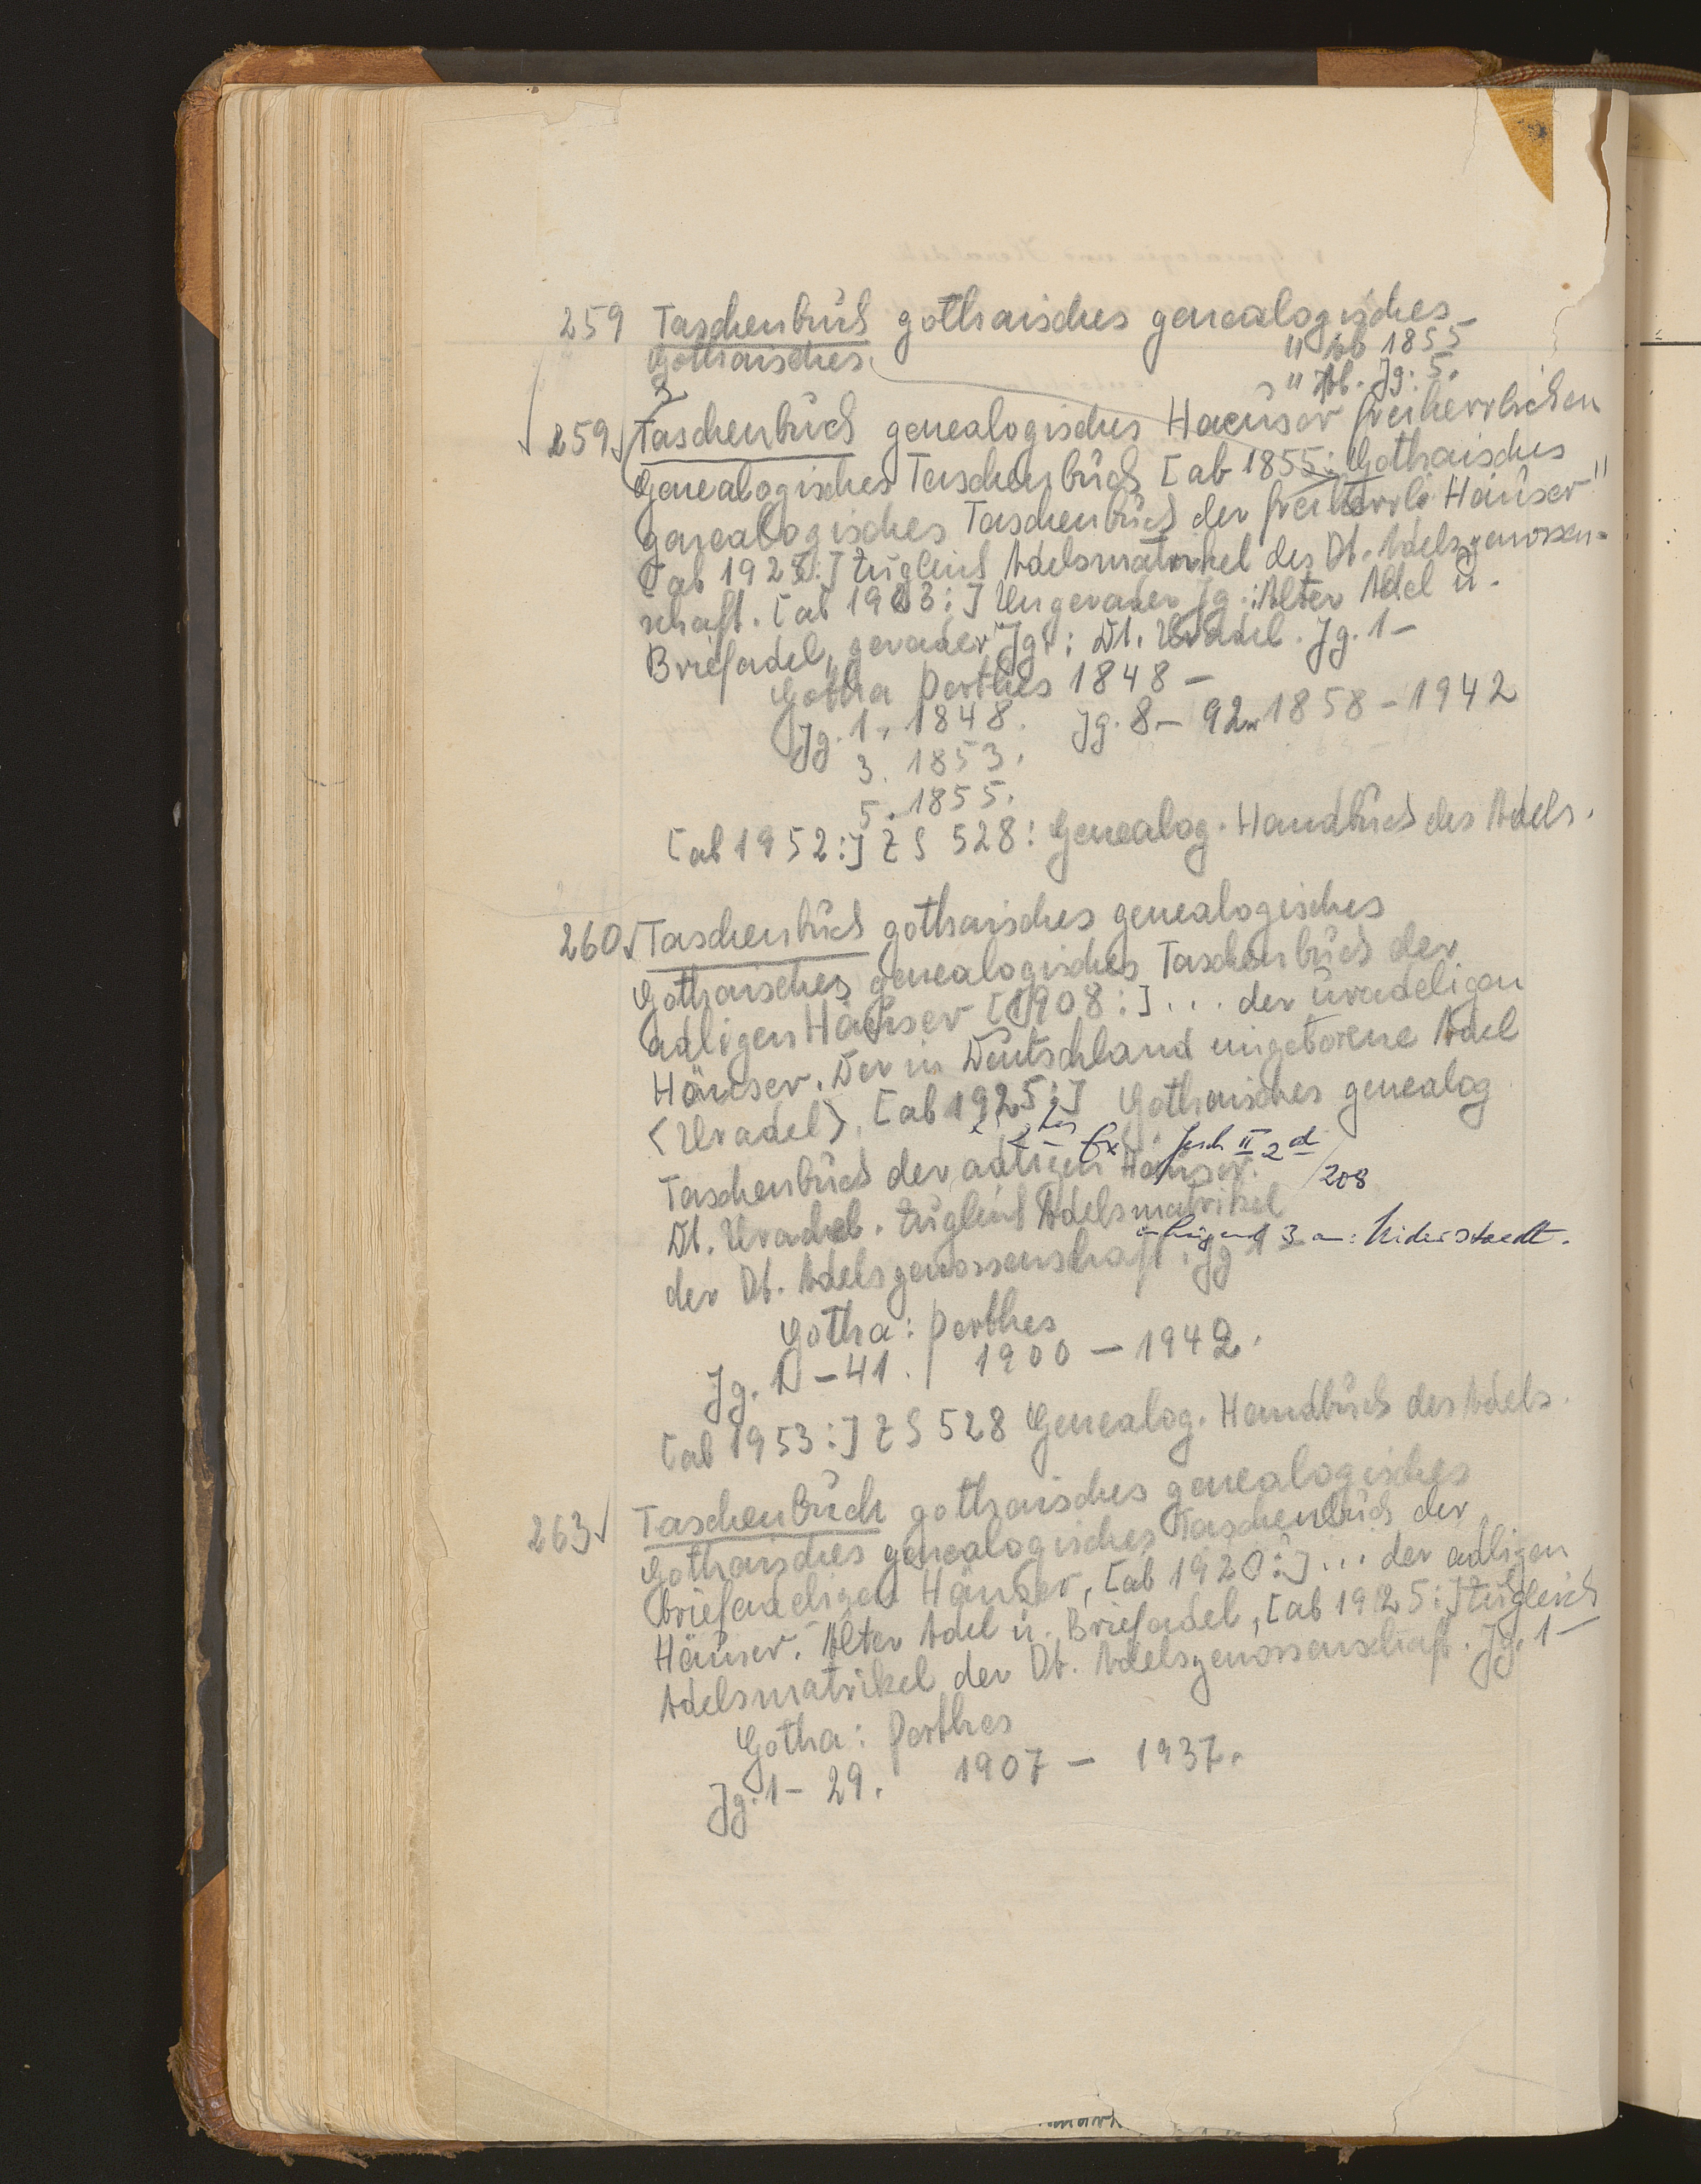 259 Taschenbuch gothaisches genealogisches
Gothaisches " Ab 1855
" Ab. Jg. 5.
259 Taschenbuch genealogisches Haeuser freiherrlichen
Genealogisches Taschenbuch [ab 1855: Gothaisches
genealogisches Taschenbuch der freiherrl. Häuser"
[ab 1925:] Zugleich Adelsmatrikel der Dt. Adelsgenossen-
schaft. [ab 1903:] Ungerader Jg.: Alter Adel u.
Briefadel, gerader Jg.: Dt. Uradel. Jg. 1-
Gotha Perthes 1848 -
Jg. 1. 1848. Jg. 8 - 92. 1858 - 1942
3. 1853.
5. 1855.
[ab 1952:] ZS 528: Genealog. Handbuch des Adels.
260 Taschenbuch gothaisches genealogisches
Gothaisches genealogisches Taschenbuch der
adligen Häuser [1908:] ... der uradeligen
Häuser. Der in Deutschland eingeborene Adel
<Uradel>. [ab 1925:] Gothaisches genealog
2tes Ex II 2d
Taschenbuch der adligen Häuser. /208
Dt. Uradel. Zugleich Adelsmatrikel
der Dt. Adelsgenossenschaft. Jg 1-
Gotha: Perthes
Jg. 1 - 41. 1900 - 1942.
[ab 1953:] ZS 528 Genealog. Handbuch des Adels.
263 Taschenbuch gothaisches genealogisches
Gothaisches genealogisches Taschenbuch der
briefadeligen Häuser, [ab 1920:] ... der adligen
Häuser. Alter Adel u. Briefadel, [ab 1925:] Zugleich
Adelsmatrikel der Dt. Adelsgenossenschaft. Jg. 1-
Gotha: Perthes
Jg. 1 - 29. 1907 - 1937.